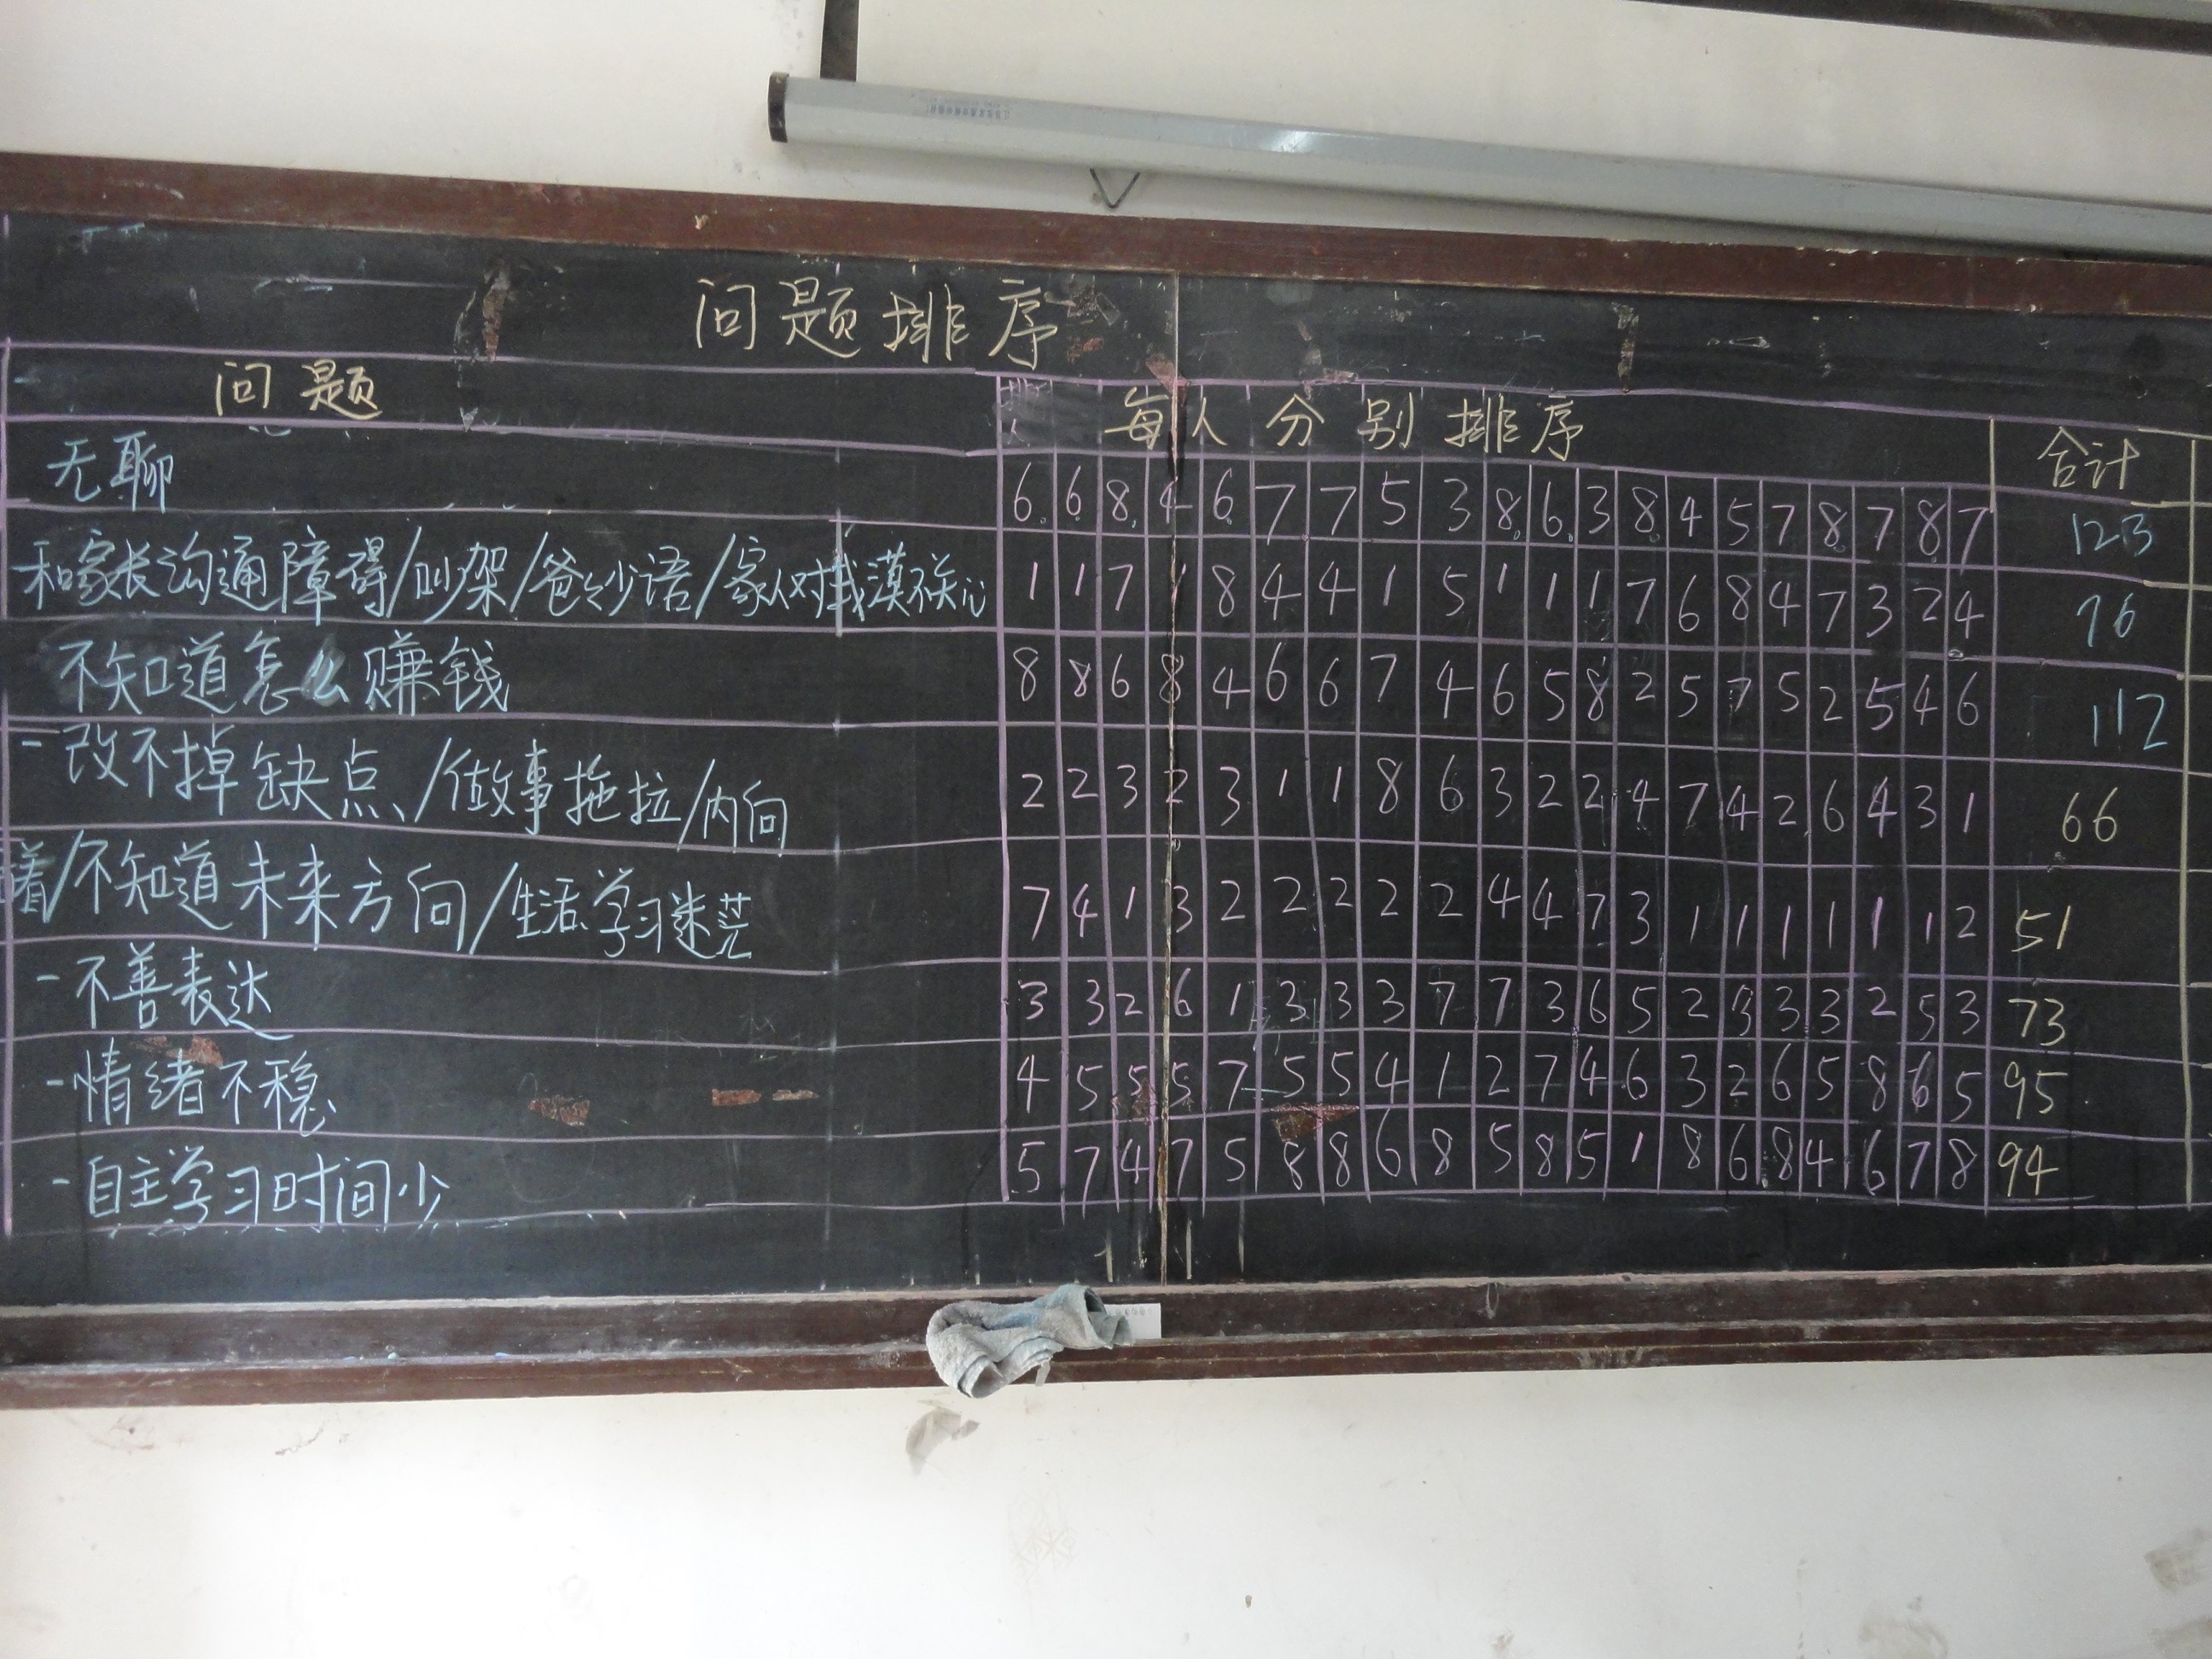 问题排序
问题 每人分别排序 合计
无聊 6 6 8 4 6 7 7 5 3 8 6 3 8 4 5 7 8 7 8 7 123
和家长沟通障碍/吵架/爸少语/家人对我漠不关心 1 1 7 1 8 4 4 1 5 1 1 1 7 6 8 4 7 3 2 4 76
不知道怎么赚钱 8 8 6 8 4 6 6 7 4 6 5 8 2 5 7 5 2 5 4 6 112
-改不掉缺点/做事拖拉/内向 2 2 3 2 3 1 1 8 6 3 2 2 4 7 4 2 6 4 3 1 66
着/不知道未来方向/生活学习迷茫 7 4 1 3 2 2 2 2 2 4 4 7 3 1 1 1 1 1 1 2 51
-不善表达 3 3 2 6 1 3 3 3 7 7 3 6 5 2 3 3 3 2 5 3 73
-情绪不稳 4 5 5 5 7 5 5 4 1 2 7 4 6 3 2 6 5 8 6 5 95
-自主学习时间少 5 7 4 7 5 8 8 6 8 5 8 5 1 8 6 8 4 6 7 8 94